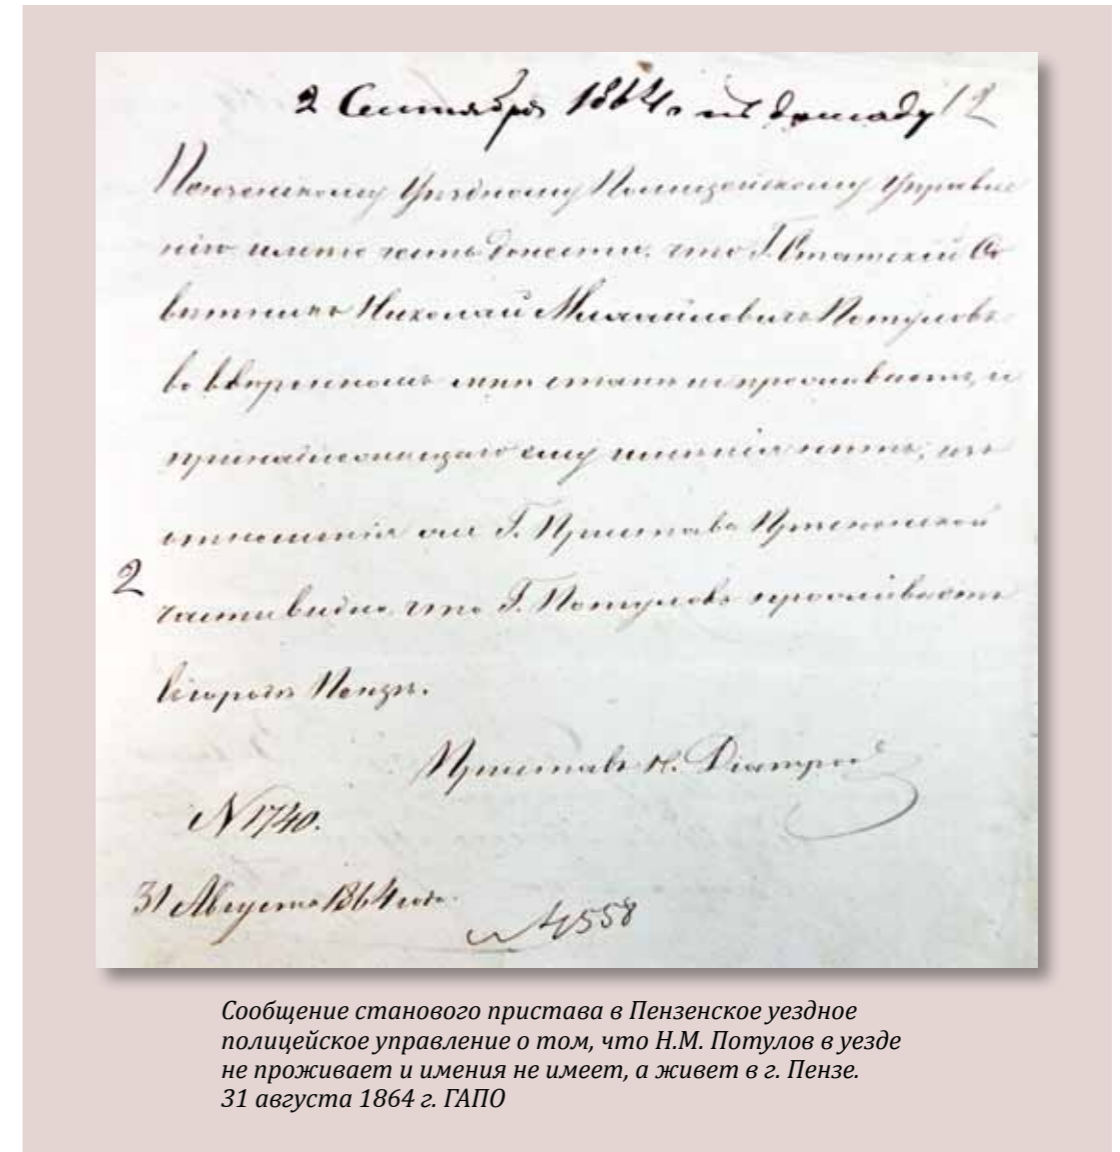 2 Сентября 1864 г. къ докладу 12
Пензенскому Уѣздному Полицейскому Управле
нію имѣю честь донести, что Г. Статскій Со
вѣтникъ Николай Михайловичь Потуловъ
во ввѣренномъ мнѣ станѣ не проживаетъ, и
принадлежащаго ему имѣнія нѣтъ, изъ
отношенія же Г. Пристава
2
части видно, что Г. Потуловъ проживаетъ
въ городѣ Пензѣ.
Приставъ
N 1740.
31 Августа 1864 года.
N 4558
Сообщение станового пристава в Пензенское уездное
полицейское управление о том, что Н.М. Потулов в уезде
не проживает и имения не имеет, а живет в г. Пензе.
31 августа 1864 г. ГАПО